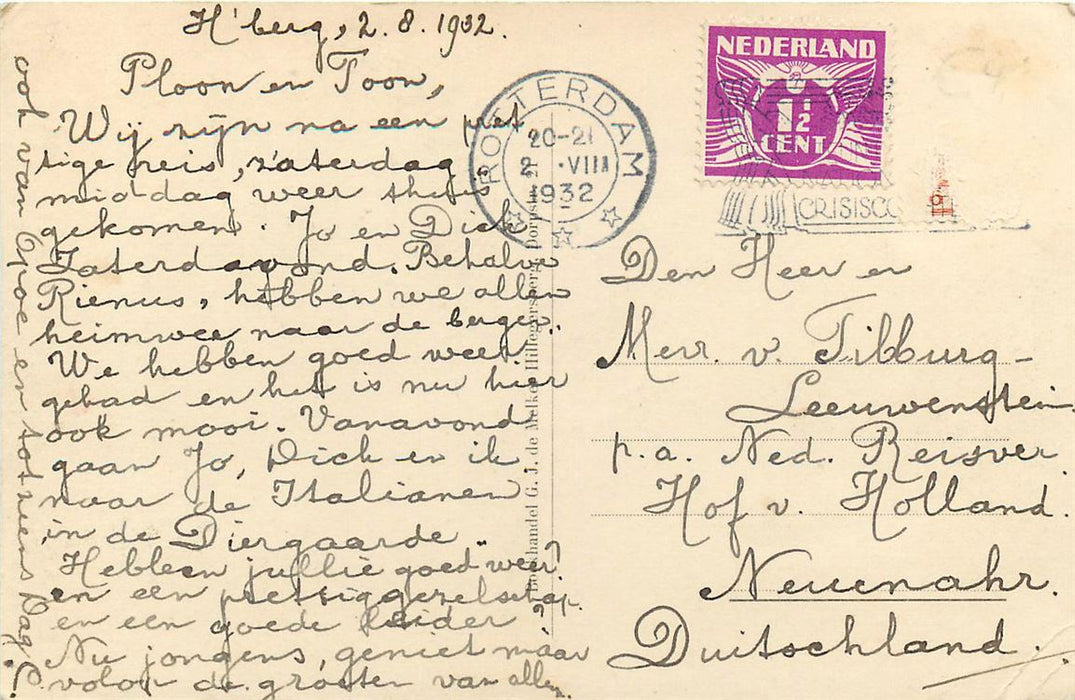 H'berg, 2.8.1932.
Ploon en Toon,
Wij zijn na een pret
tige reis, zaterdag
middag weer thuis
gekomen. Jo en Dick
Zaterdavond. Behalve
Rienus, hebben we allen
heimwee naar de bergen.
We hebben goed weer
gehad en het is nu hier
ook mooi. Vanavond
gaan Jo, Dick en ik
naar de Italianen
in de Diergaarde.
Hebben jullie goed weer?
en een prettig gezelschap
en een goede leider?
Nu jongens, geniet maar
volop de groeten van allen.
ook van Opoe en tot ziens Dag!
ROTTERDAM
20-21
2 VIII
1932
NEDERLAND
1½
CENT
CRISISCO
Den Heer en
Mevr. v. Tilburg-
Leeuwenstein
p.a. Ned. Reisver
Hof v. Holland.
Neuenahr.
Duitschland.
Boekhandel G. J. de Melker Hillegersberg Dorpsstr.